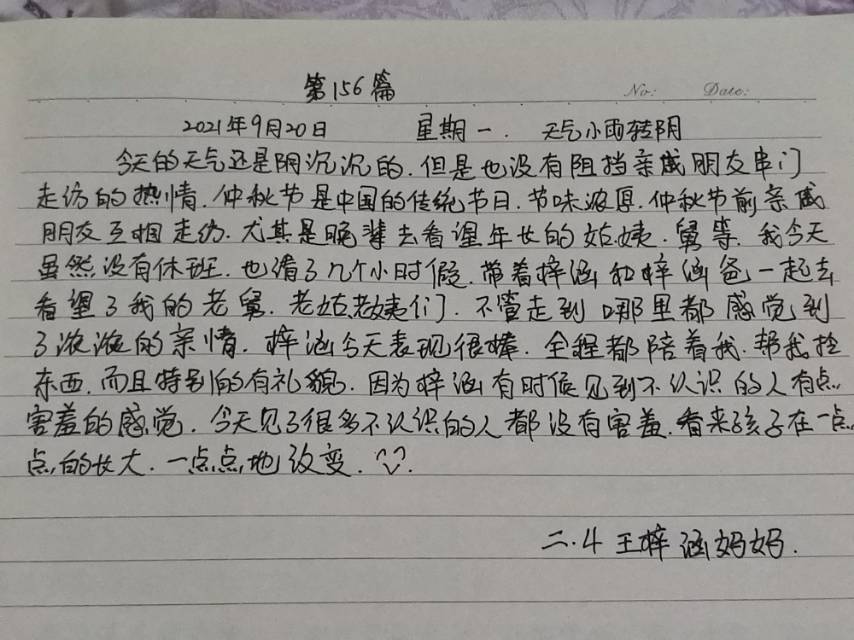 第156篇
No: Date:
2021年9月20日 星期一. 天气小雨转阴
今天的天气还是阴沉沉的.但是也没有阻挡亲戚朋友串门
走访的热情.仲秋节是中国的传统节日.节味浓厚.仲秋节前亲戚
朋友互相走访.尤其是晚辈去看望年长的姑姨.舅等.我今天
虽然没有休班.也请了几个小时假.带着梓涵和梓涵爸一起去
看望了我的老舅.老姑老姨们.不管走到哪里都感觉到
了浓浓的亲情.梓涵今天表现很棒.全程都陪着我.帮我拴
东西.而且特别的有礼貌.因为梓涵有时候见到不认识的人有点
害羞的感觉.今天见了很多不认识的人都没有害羞.看来孩子在一点
点的长大.一点点地改变.
二.4王梓涵妈妈.